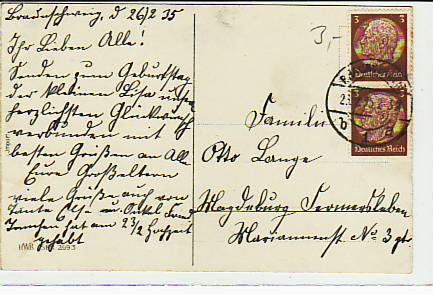 Braunschweig, d 26/2 35
Ihr Lieben Alle!
Senden zum Geburtstag
der kleinen Lisa unsre
herzlichsten Glückwünsche
verbunden mit
besten Grüßen an Alle
Eure Großeltern
viele Grüße auch von
Tante Else u. Onkel
hat am 23/2 Hochzeit
gehabt
HWB 2693
3,-
3 3
Deutsches Reich
3
Deutsches Reich
Familie
Otto Lange
Magdeburg Fermersleben
No 3 ptr